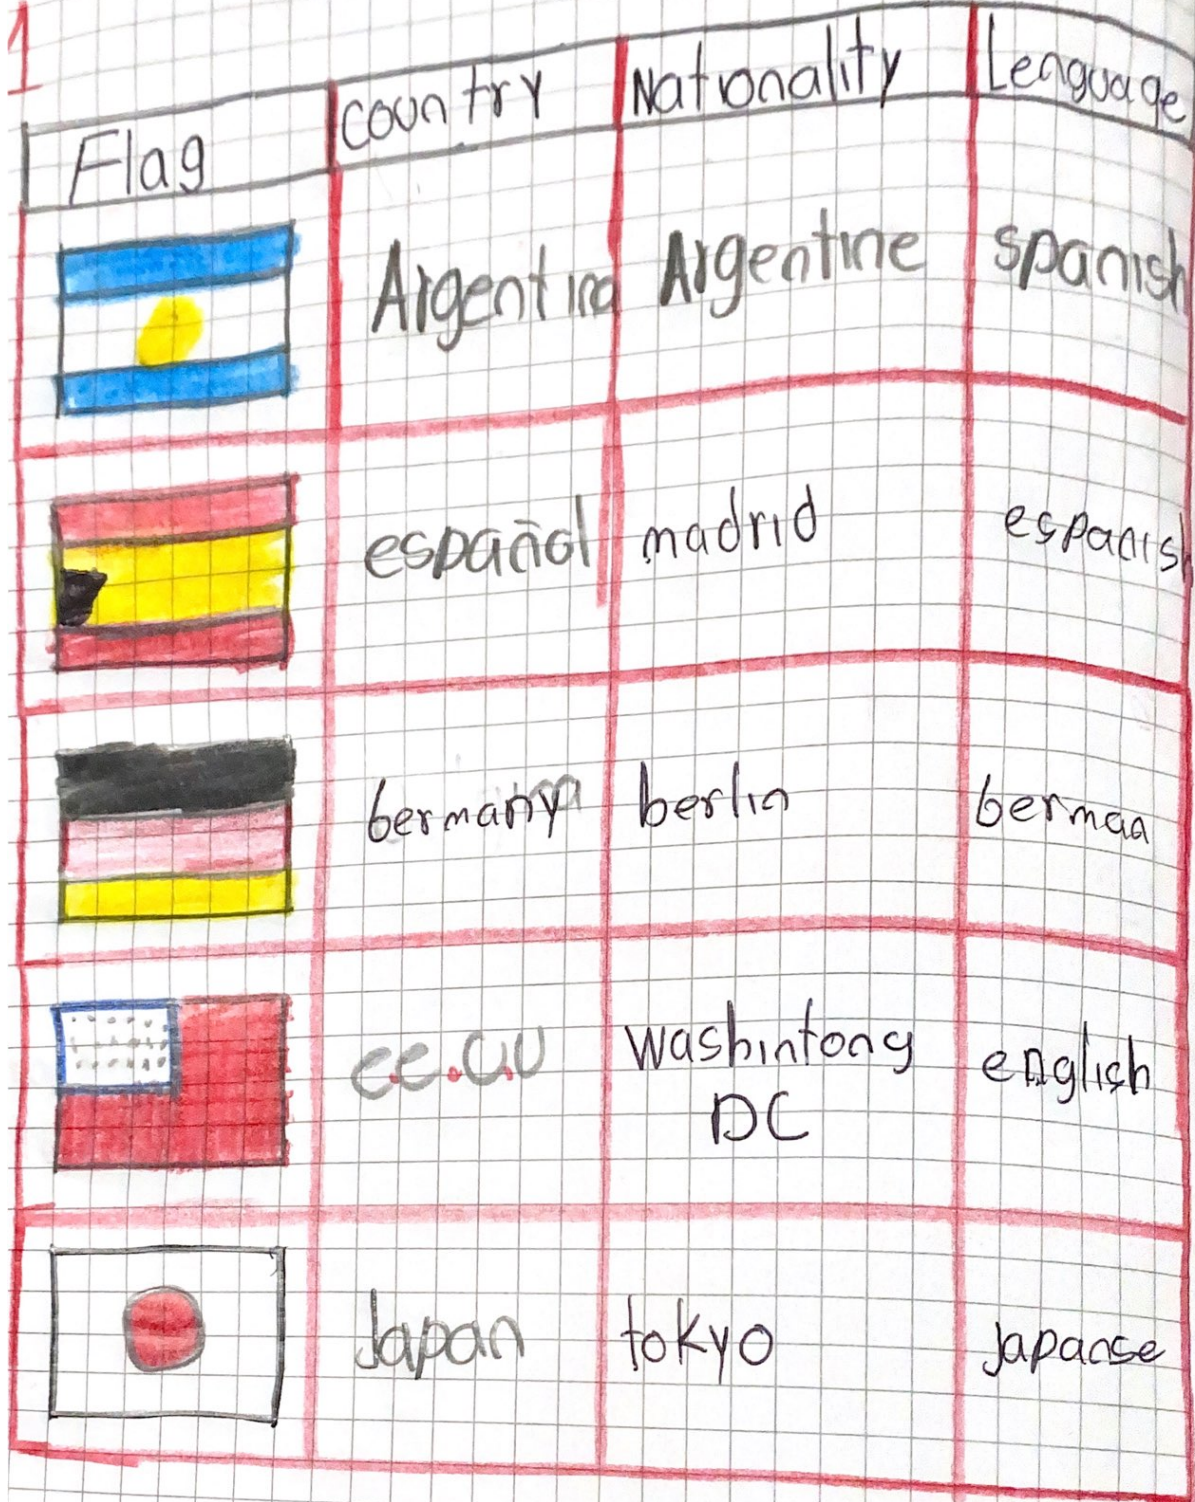 1
Flag country Nationality Lenguage
Argentina Argentine spanish
español madrid espanish
Germany berlin German
ee.uu washintong english
DC
Japan tokyo japanse